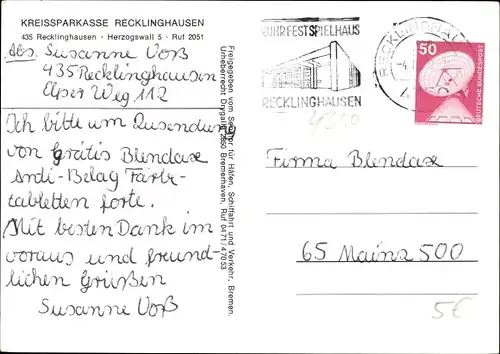 KREISSPARKASSE RECKLINGHAUSEN
435 Recklinghausen - Herzogswall 5 - Ruf 2051
Abs. Susanne Voß
435 Recklinghausen
Elper Weg 112
Ich bitte um Zusendung
von gratis Blendax
Anti-Belag Färbe-
tabletten forte.
Mit besten Dank im
voraus und freund-
lichen Grüßen
Susanne Voß
Freigegeben vom Senator für Häfen, Schiffahrt und Verkehr, Bremen.
Urheberrecht 2850 Bremerhaven, Ruf 0471/47053
RUHRFESTSPIELHAUS
RECKLINGHAUSEN
RECKLINGHAUSEN
50
DEUTSCHE BUNDESPOST
4350
Firma Blendax
65 Mainz 500
5€